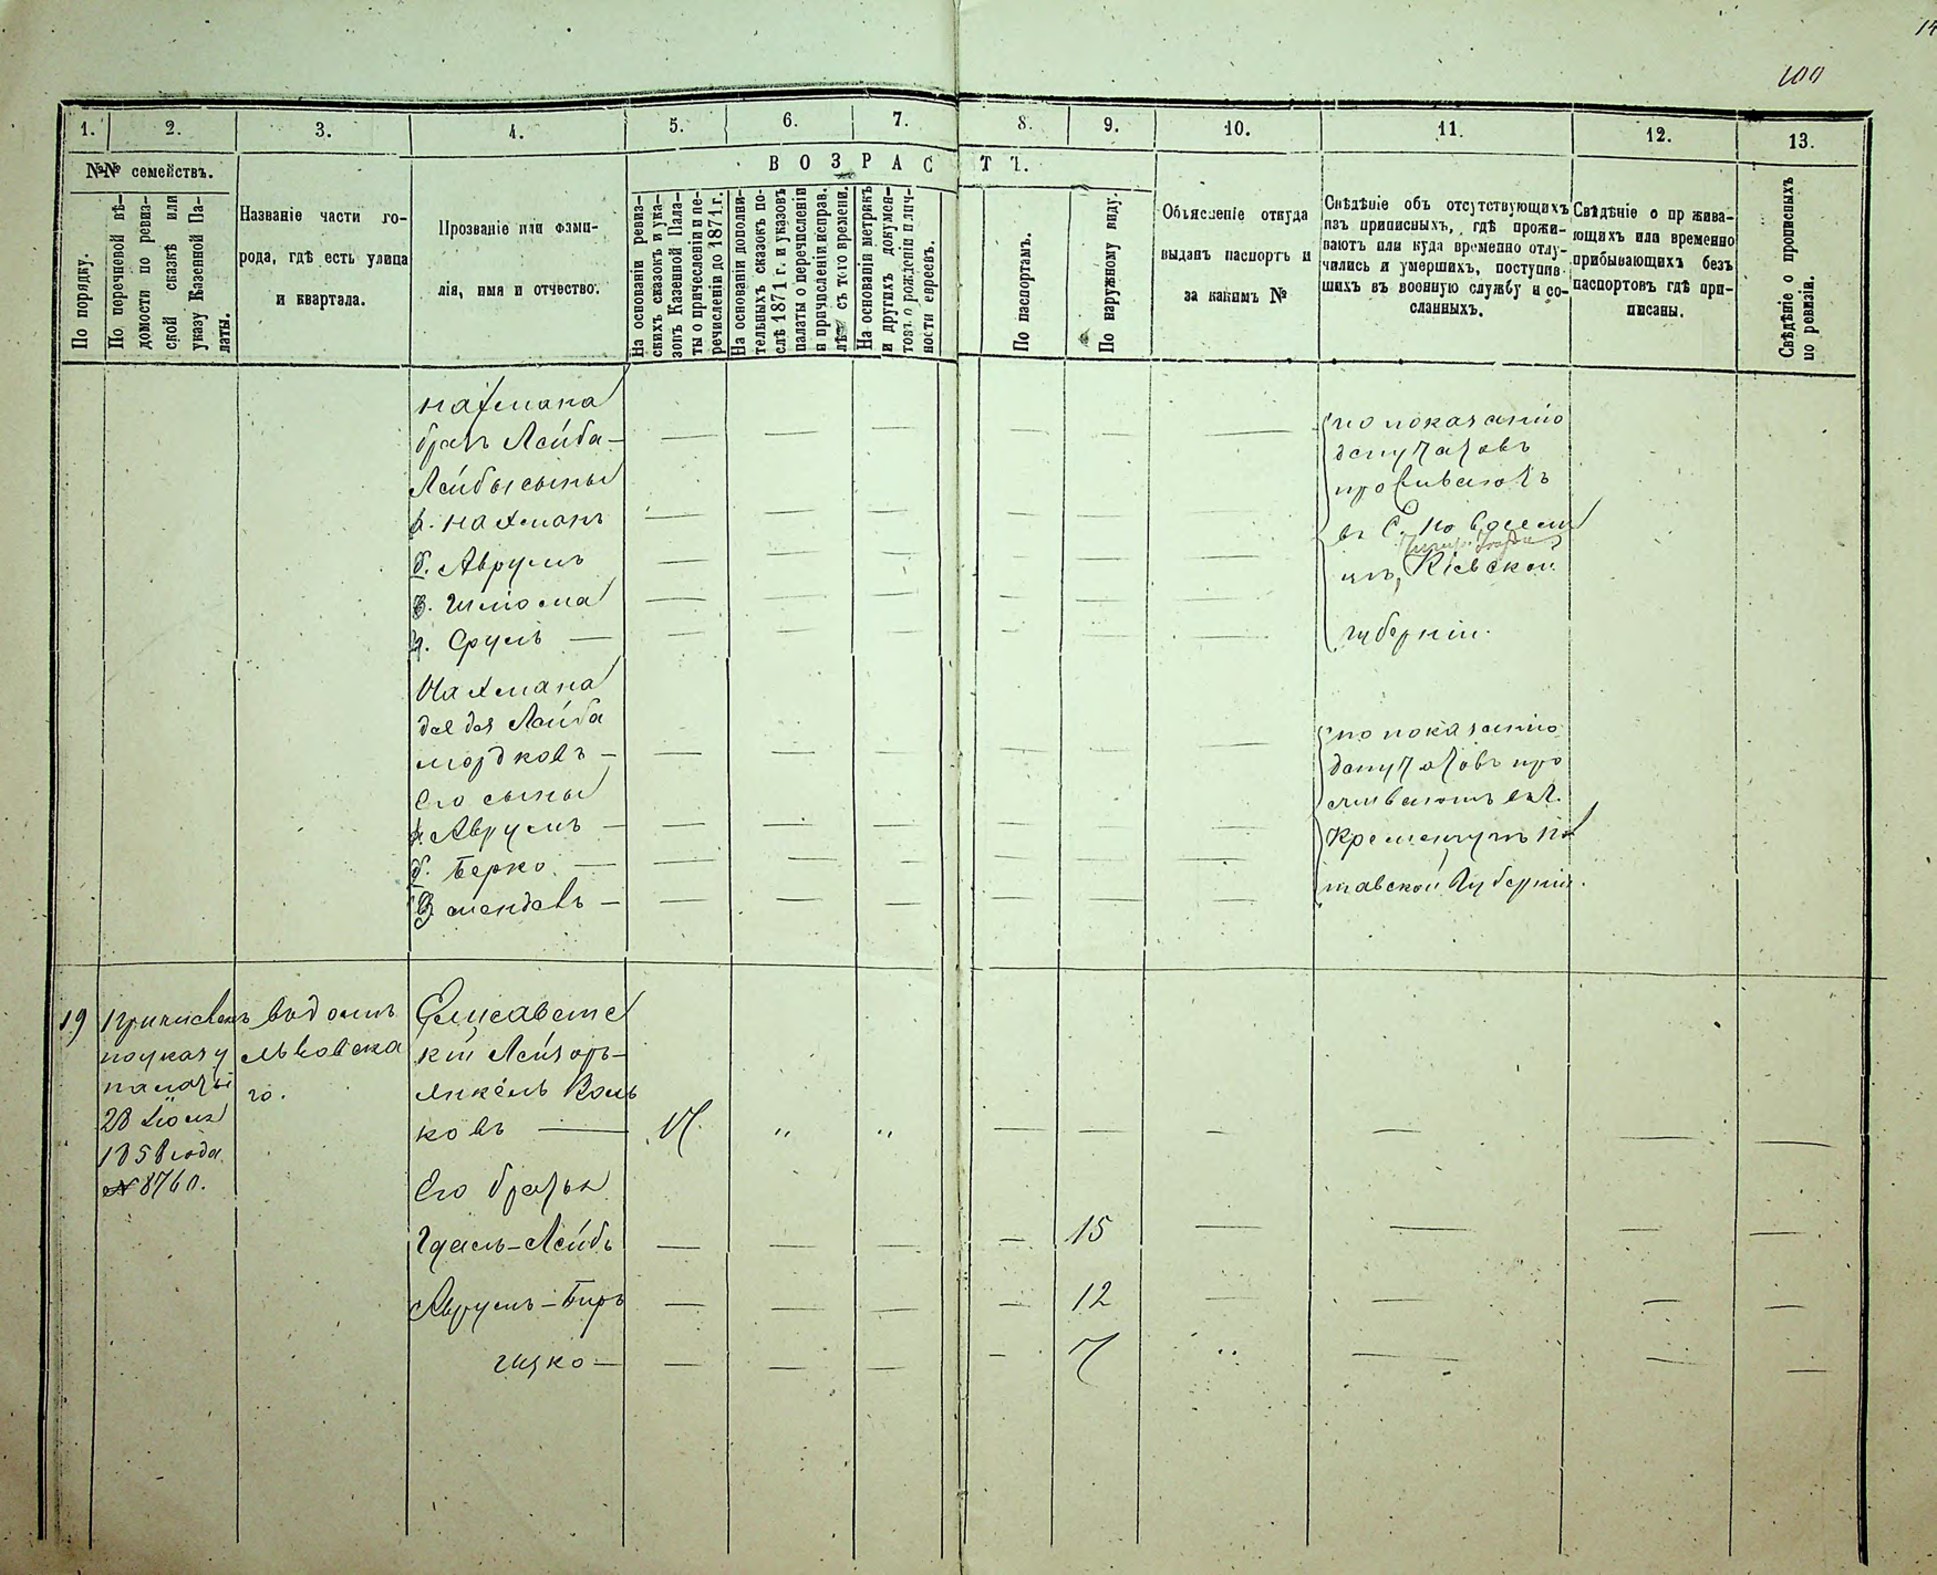 14
100
1.
2.
3.
4.
5.
6.
7.
8.
9.
10.
11.
12.
13.
№№ семействъ.
По порядку.
По перечневой вѣ-
домости по ревиз-
ской сказкѣ или
указу Казенной Па-
латы.
Названіе части го-
рода, гдѣ есть улица
и квартала.
Прозваніе или фами-
лія, имя и отчество.
ВОЗРАСТЪ.
На основаніи ревиз-
скихъ сказокъ и ука-
зовъ Казенной Пала-
ты о причесленіи и пе-
речисленіи до 1871 г.
На основаніи дополни-
тельныхъ сказокъ по-
слѣ 1871 г. и указовъ
палаты о перечисленіи
и причисленіи исправ.
лѣт съ того времени.
На основаніи метрикъ
и другихъ докумен-
товъ о рожденіи личн-
ности евреевъ.
По паспортамъ.
По наружному виду.
Объясненіе откуда
выданъ паспортъ и
за какимъ №
Свѣдѣніе объ отсутствующихъ
изъ приписныхъ, гдѣ прожи-
ваютъ или куда временно отлу-
чились и умершихъ, поступив-
шихъ въ военную службу и со-
сланныхъ.
Свѣдѣніе о пр жива-
ющихъ или временно
прибывающихъ безъ
паспортовъ гдѣ при-
писаны.
Свѣдѣніе о прописныхъ
по ревизіи.
Нахмана
братъ Лейба —
Лейбы сыны
а. Нахманъ
б. Аврумъ
в. Шліома
г. Сруль —
по показанію
депутатовъ
проживаютъ
въ С.
Кіевской
губерніи.
Нахмана
дядя Лейба
Мордковъ —
Его сыны
а. Аврумъ —
б. Берко —
в. Мендель —
по показанію
депутатовъ про
живаютъ въ г.
Кременчугъ По
тавской Губерніи.
19
Причисленъ
по указу
палаты
28 Іюля
1858 года
№ 8760.
въ домѣ
Львовска
го.
Елисаветс
кій Лейзоръ-
Янкель Воль
ковъ — 17. „ „
Его братья
Гдаль-Лейбъ 15
Аврумъ-Биръ 12
Ицко — 7 „